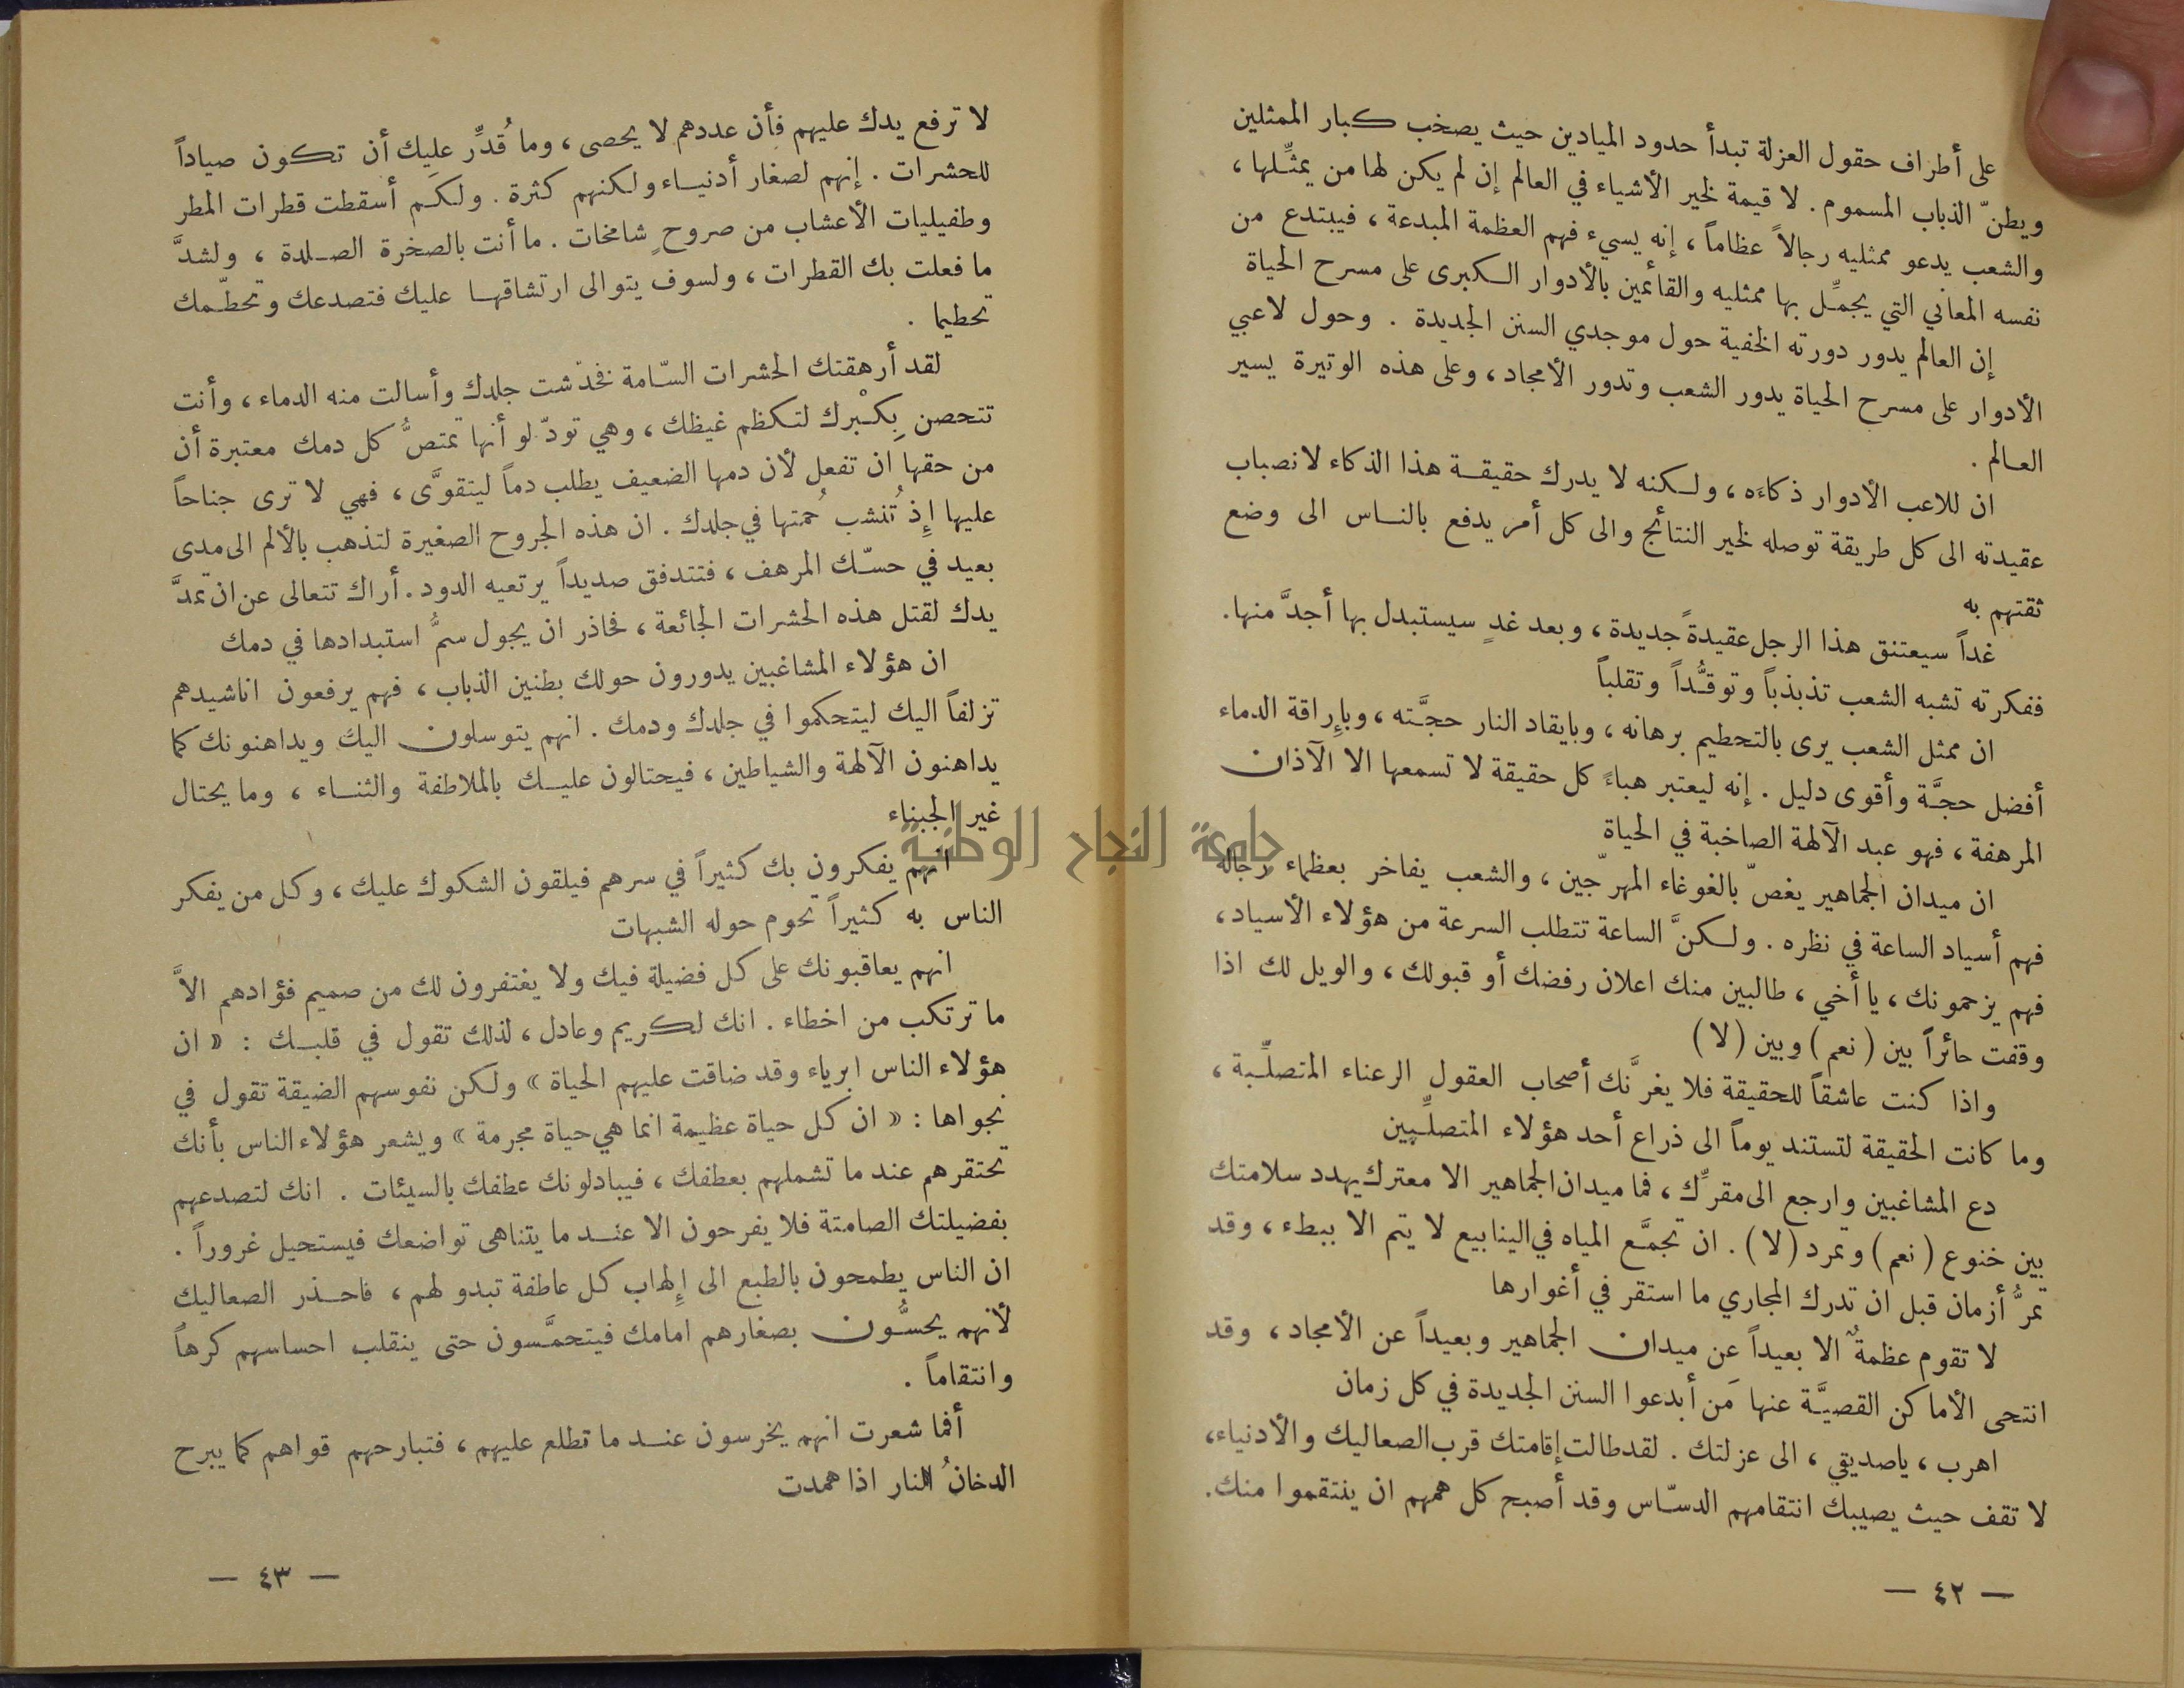 على أطراف حقول العزلة تبدأ حدود الميادين حيث يصخب كبار الممثلين
ويطنّ الذباب المسموم . لا قيمة لخير الأشياء في العالم إن لم يكن لها من يمثِّلها ،
والشعب يدعو ممثليه رجالاً عظاماً ، إنه يسيء فهم العظمة المبدعة ، فيبتدع من
نفسه المعاني التي يجمِّل بها ممثليه والقائمين بالأدوار الكبرى على مسرح الحياة
إن العالم يدور دورته الخفية حول موجدي السنن الجديدة . وحول لاعبي
الأدوار على مسرح الحياة يدور الشعب وتدور الأمجاد ، وعلى هذه الوتيرة يسير
العالم .
ان للاعب الأدوار ذكاءَه ، ولكنه لا يدرك حقيقة هذا الذكاء لانصباب
عقيدته الى كل طريقة توصله لخير النتائج والى كل أمر يدفع بالناس الى وضع
ثقتهم به
غداً سيعتنق هذا الرجل عقيدةً جديدة ، وبعد غدٍ سيستبدل بها أجدَّ منها .
ففكرته تشبه الشعب تذبذباً وتوقُّداً وتقلباً
ان ممثل الشعب يرى بالتحطيم برهانه ، وبايقاد النار حجَّته ، وبإِراقة الدماء
أفضل حجَّة وأقوى دليل . إنه ليعتبر هباءً كل حقيقة لا تسمعها الا الآذان
المرهفة ، فهو عبد الآلهة الصاخبة في الحياة
ان ميدان الجماهير يغصّ بالغوغاء المهرّجين ، والشعب يفاخر بعظماء رجاله
فهم أسياد الساعة في نظره . ولكنَّ الساعة تتطلب السرعة من هؤلاء الأسياد ،
فهم يزحمونك ، يا أخي ، طالبين منك اعلان رفضك أو قبولك ، والويل لك اذا
وقفت حائراً بين ( نعم ) وبين ( لا )
واذا كنت عاشقاً للحقيقة فلا يغرَّنك أصحاب العقول الرعناء المتصلِّبة ،
وما كانت الحقيقة لتستند يوماً الى ذراع أحد هؤلاء المتصلِّبين
دع المشاغبين وارجع الى مقرِّك ، فما ميدان الجماهير الا معترك يهدد سلامتك
بين خنوع ( نعم ) وتمرد ( لا ) . ان تجمَّع المياه في الينابيع لا يتم الا ببطء ، وقد
تمرُّ أزمان قبل ان تدرك المجاري ما استقر في أغوارها
لا تقوم عظمةٌ الا بعيداً عن ميدان الجماهير وبعيداً عن الأمجاد ، وقد
انتحى الأماكن القصيَّة عنها مَن أبدعوا السنن الجديدة في كل زمان
اهرب ، ياصديقي ، الى عزلتك . لقد طالت إقامتك قرب الصعاليك والأدنياء ،
لا تقف حيث يصيبك انتقامهم الدسّاس وقد أصبح كل همهم ان ينتقموا منك .
— ٤٢ —
لا ترفع يدك عليهم فأن عددهم لا يحصى ، وما قُدِّر عليك أن تكون صياداً
للحشرات . إنهم لصغار أدنياء ولكنهم كثرة . ولكم أسقطت قطرات المطر
وطفيليات الأعشاب من صروحٍ شامخات . ما أنت بالصخرة الصلدة ، ولشدَّ
ما فعلت بك القطرات ، ولسوف يتوالى ارتشاقها عليك فتصدعك وتحطّمك
تحطيما .
لقد أرهقتك الحشرات السّامة فخدّشت جلدك وأسالت منه الدماء ، وأنت
تتحصن بِكبْرك لتكظم غيظك ، وهي تودّ لو أنها تمتصُّ كل دمك معتبرة أن
من حقها ان تفعل لأن دمها الضعيف يطلب دماً ليتقوَّى ، فهي لا ترى جناحاً
عليها إِذ تُنشب حُمتها في جلدك . ان هذه الجروح الصغيرة لتذهب بالألم الى مدى
بعيد في حسّك المرهف ، فتتدفق صديداً يرتعيه الدود . أراك تتعالى عن ان تمدَّ
يدك لقتل هذه الحشرات الجائعة ، فحاذر ان يجول سمُّ استبدادها في دمك
ان هؤلاء المشاغبين يدورون حولك بطنين الذباب ، فهم يرفعون اناشيدهم
تزلفاً اليك ليتحكموا في جلدك ودمك . انهم يتوسلون اليك ويداهنونك كما
يداهنون الآلهة والشياطين ، فيحتالون عليك بالملاطفة والثناء ، وما يحتال
غير الجبناء
انهم يفكرون بك كثيراً في سرهم فيلقون الشكوك عليك ، وكل من يفكر
الناس به كثيراً تحوم حوله الشبهات
انهم يعاقبونك على كل فضيلة فيك ولا يغتفرون لك من صميم فؤادهم الاَّ
ما ترتكب من اخطاء . انك لكريم وعادل ، لذلك تقول في قلبك : « ان
هؤلاء الناس ابرياء وقد ضاقت عليهم الحياة » ولكن نفوسهم الضيقة تقول في
نجواها : « ان كل حياة عظيمة انما هي حياة مجرمة » ويشعر هؤلاء الناس بأنك
تحتقرهم عند ما تشملهم بعطفك ، فيبادلونك عطفك بالسيئات . انك لتصدعهم
بفضيلتك الصامتة فلا يفرحون الا عند ما يتناهى تواضعك فيستحيل غروراً .
ان الناس يطمحون بالطبع الى إِلهاب كل عاطفة تبدو لهم ، فاحذر الصعاليك
لأنهم يحسُّون بصغارهم امامك فيتحمَّسون حتى ينقلب احساسهم كرهاً
وانتقاماً .
أفما شعرت انهم يخرسون عند ما تطلع عليهم ، فتبارحهم قواهم كما يبرح
الدخانُ النار اذا همدت
— ٤٣ —
جامعة النجاح الوطنية